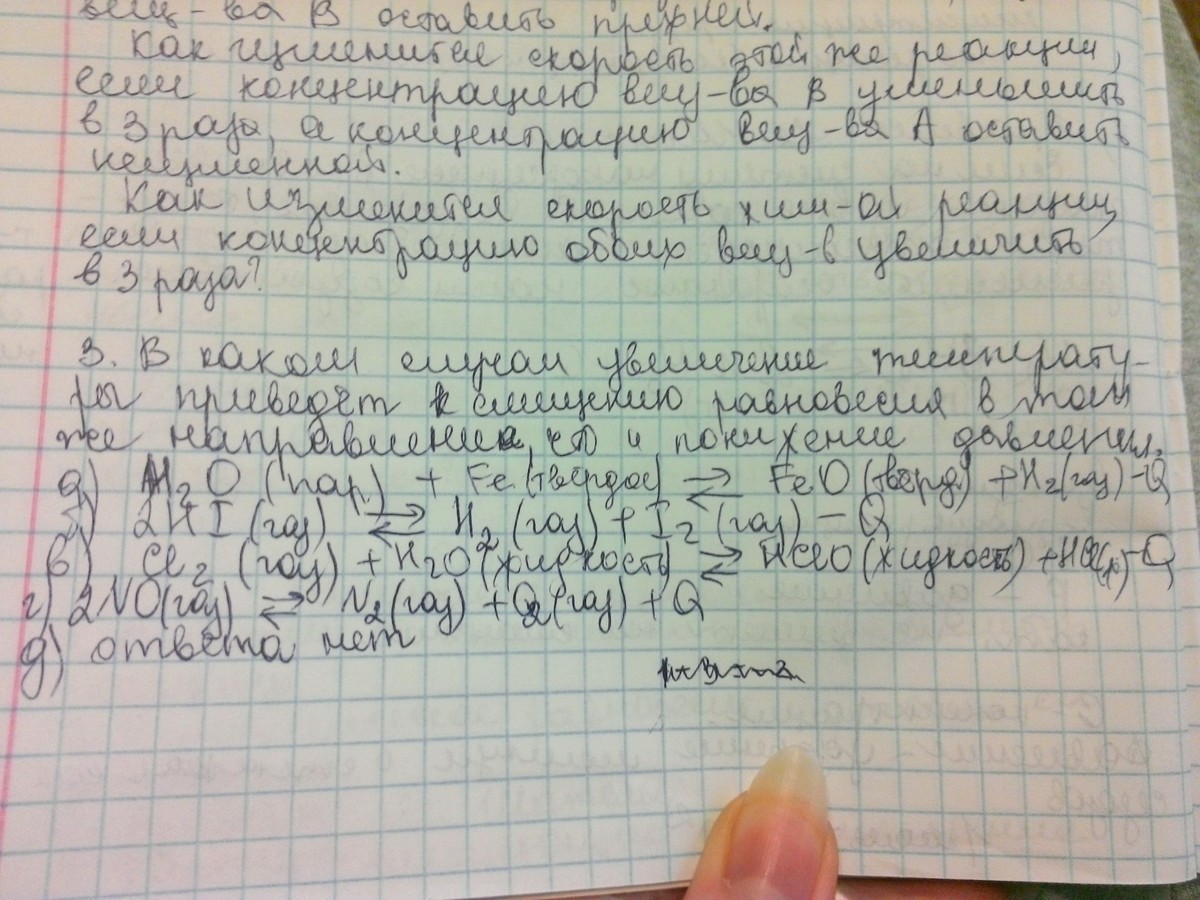 вещ-ва В оставить прежней.
Как изменится скорость этой же реакции,
если концентрацию вещ-ва В уменьшить
в 3 раза, а концентрацию вещ-ва А оставить
неизменной.
Как изменится скорость хим-ой реакции,
если концентрацию обоих вещ-в увеличить
в 3 раза?
3. В каком случаи увеличение температу-
ры приведёт к смещению равновесия в том
же направлении, что и понижение давления.
а) H₂O (пар) + Fe (твёрдое) ⇄ FeO (твёрд) + H₂ (газ) - Q
б) 2HI (газ) ⇄ H₂ (газ) + I₂ (газ) - Q
в) Cl₂ (газ) + H₂O (жидкость) ⇄ HClO (жидкость) + HCl(ж) - Q
г) 2NO(газ) ⇄ N₂ (газ) + O₂ (газ) + Q
д) ответа нет